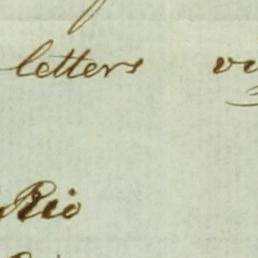 letters
Rio